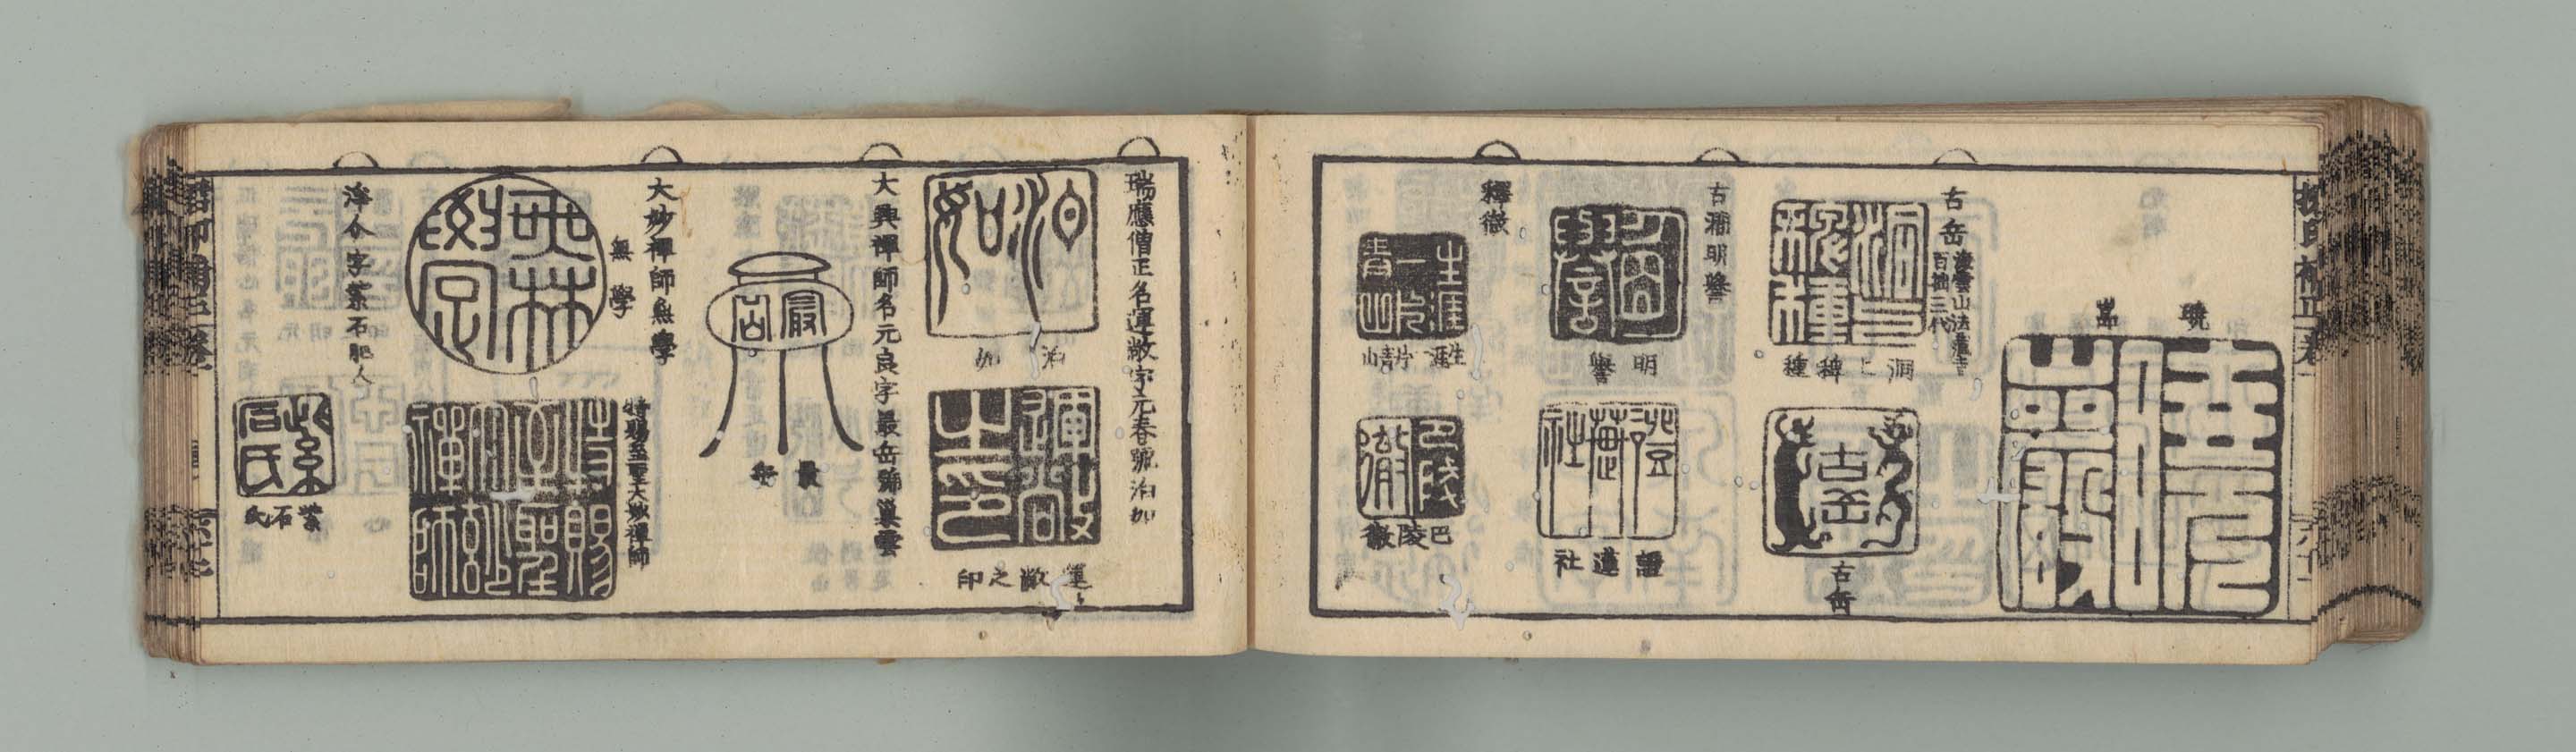 曉嵩
古岳
百拙三代
洞上種種
古岳
古礀明譽
明譽
證蓮社
釋徹
生涯一片青山
巴陵徹
瑞應僧正名運敞字元春號泊如
泊如
運敞之印
大興禪師名元良字最岳號巢雲
最岳
大妙禪師無學
無學
特賜至聖大妙禪師
淨今字紫石肥人
紫石氏